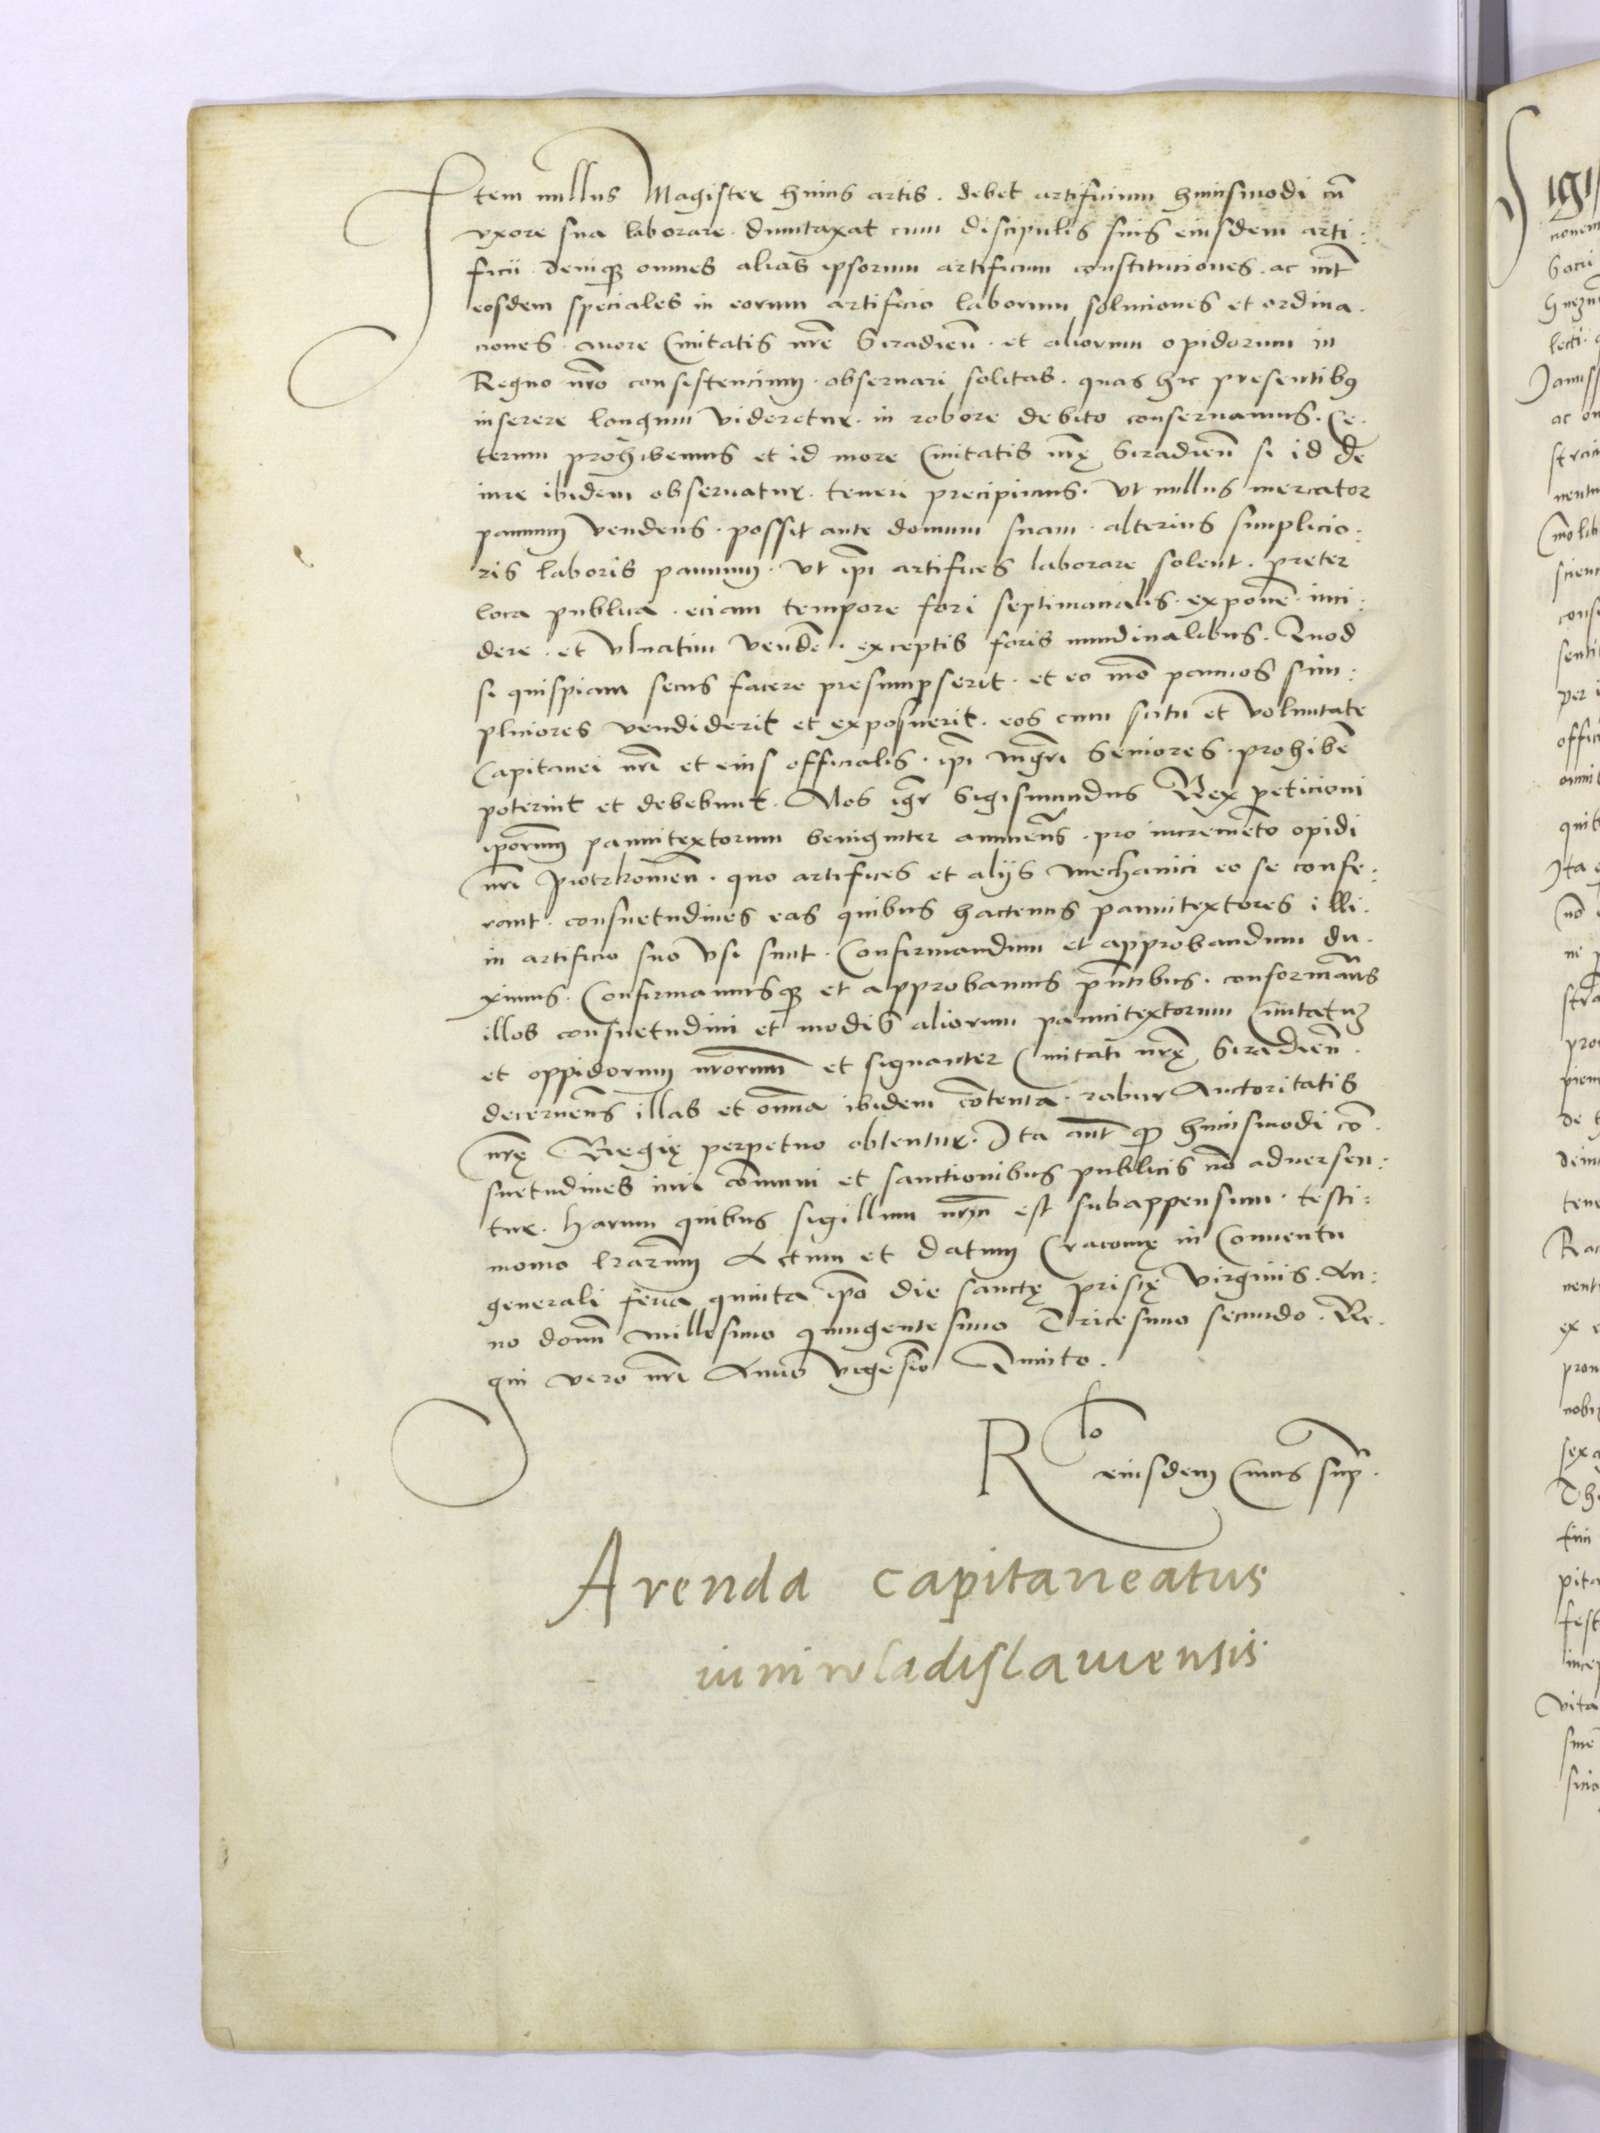 Item nullus Magister huius artis. debet artificium huiusmodi cũ
vxore sua laborare. dumtaxat cum discipulis suis eiusdem arti:
ficii. deniqꝫ omnes alias ipsorum artificum constituciones. ac int̃
eosdem speciales in eorum artificio laborum soluciones et ordina.
ciones. more Ciuitatis nr̃e Siradieñ. et aliorum opidorum in
Regno nr̃o consistencium. obseruari solitas. quas hic presentibꝰ
inserere longum videretur. in robore debito conseruamus. Ce.
terum prohibemus et id more Ciuitatis nr̃ę Siradieñ si id de
iure ibidem obseruatur. teneri precipimus. Vt nullus mercator
pannum vendens. possit ante domum suam. alterius simplicio:
ris laboris pannum. Vt ip̃i artifices laborare solent. preter
loca publica. eciam tempore fori septimanalis. exponẽ. inci:
dere. et vlnatim vendẽ. exceptis foris nundinalibus. Quod
si quispiam secus facere presumpserit. et eo mõ pannos sim:
pliciores vendiderit et exposuerit. eos cum scitu et voluntate
Capitanei nr̃i et eius officialis. ip̃i mgr̃i Seniores. prohibẽ
poterint et debebunt. Nos igr̃ Sigismundus Rex peticioni
ip̃orum pannitextorum benigniter annueñs. pro incremẽto opidi
nr̃i Piotrkowień. quo artifices et alijs mechanici eo se confe:
rant. consuetudines eas quibus hactenus pannitextores illi.
in artificio suo vsi sunt. Confirmandum et approbandum du.
ximus. Confirmamusqꝫ et approbamus pñtibus. conformañs
illos consuetudini et modis aliorum pannitextorum Ciuitatuꝫ
et oppidorum nr̃orum et signanter Ciuitati nr̃ę Siradieñ.
decerneñs illas et om̃ia ibidem cõtenta. robur Auctoritatis
nr̃ę Regię perpetuo obtentur. Ita aut̃ qꝫ huiusmodi cõ.
suetudines iuri cõmuni et sanctionibus publicis nõ aduersen:
tur. Harum quibus sigillum nr̃um est subappensum. testi:
monio lr̃arum Actum et datum Cracouię in Conuentu
generali feria quinta ip̃o die sanctę priscę virginis. An:
no domĩ Millesimo quingentesimo Tricesimo secundo. Re.
gni vero nr̃i Anno vigesĩo Quinto.
R lo
eiusdem Cuius sup̃.
Arenda capitaneatus
iuniwladislauiensis